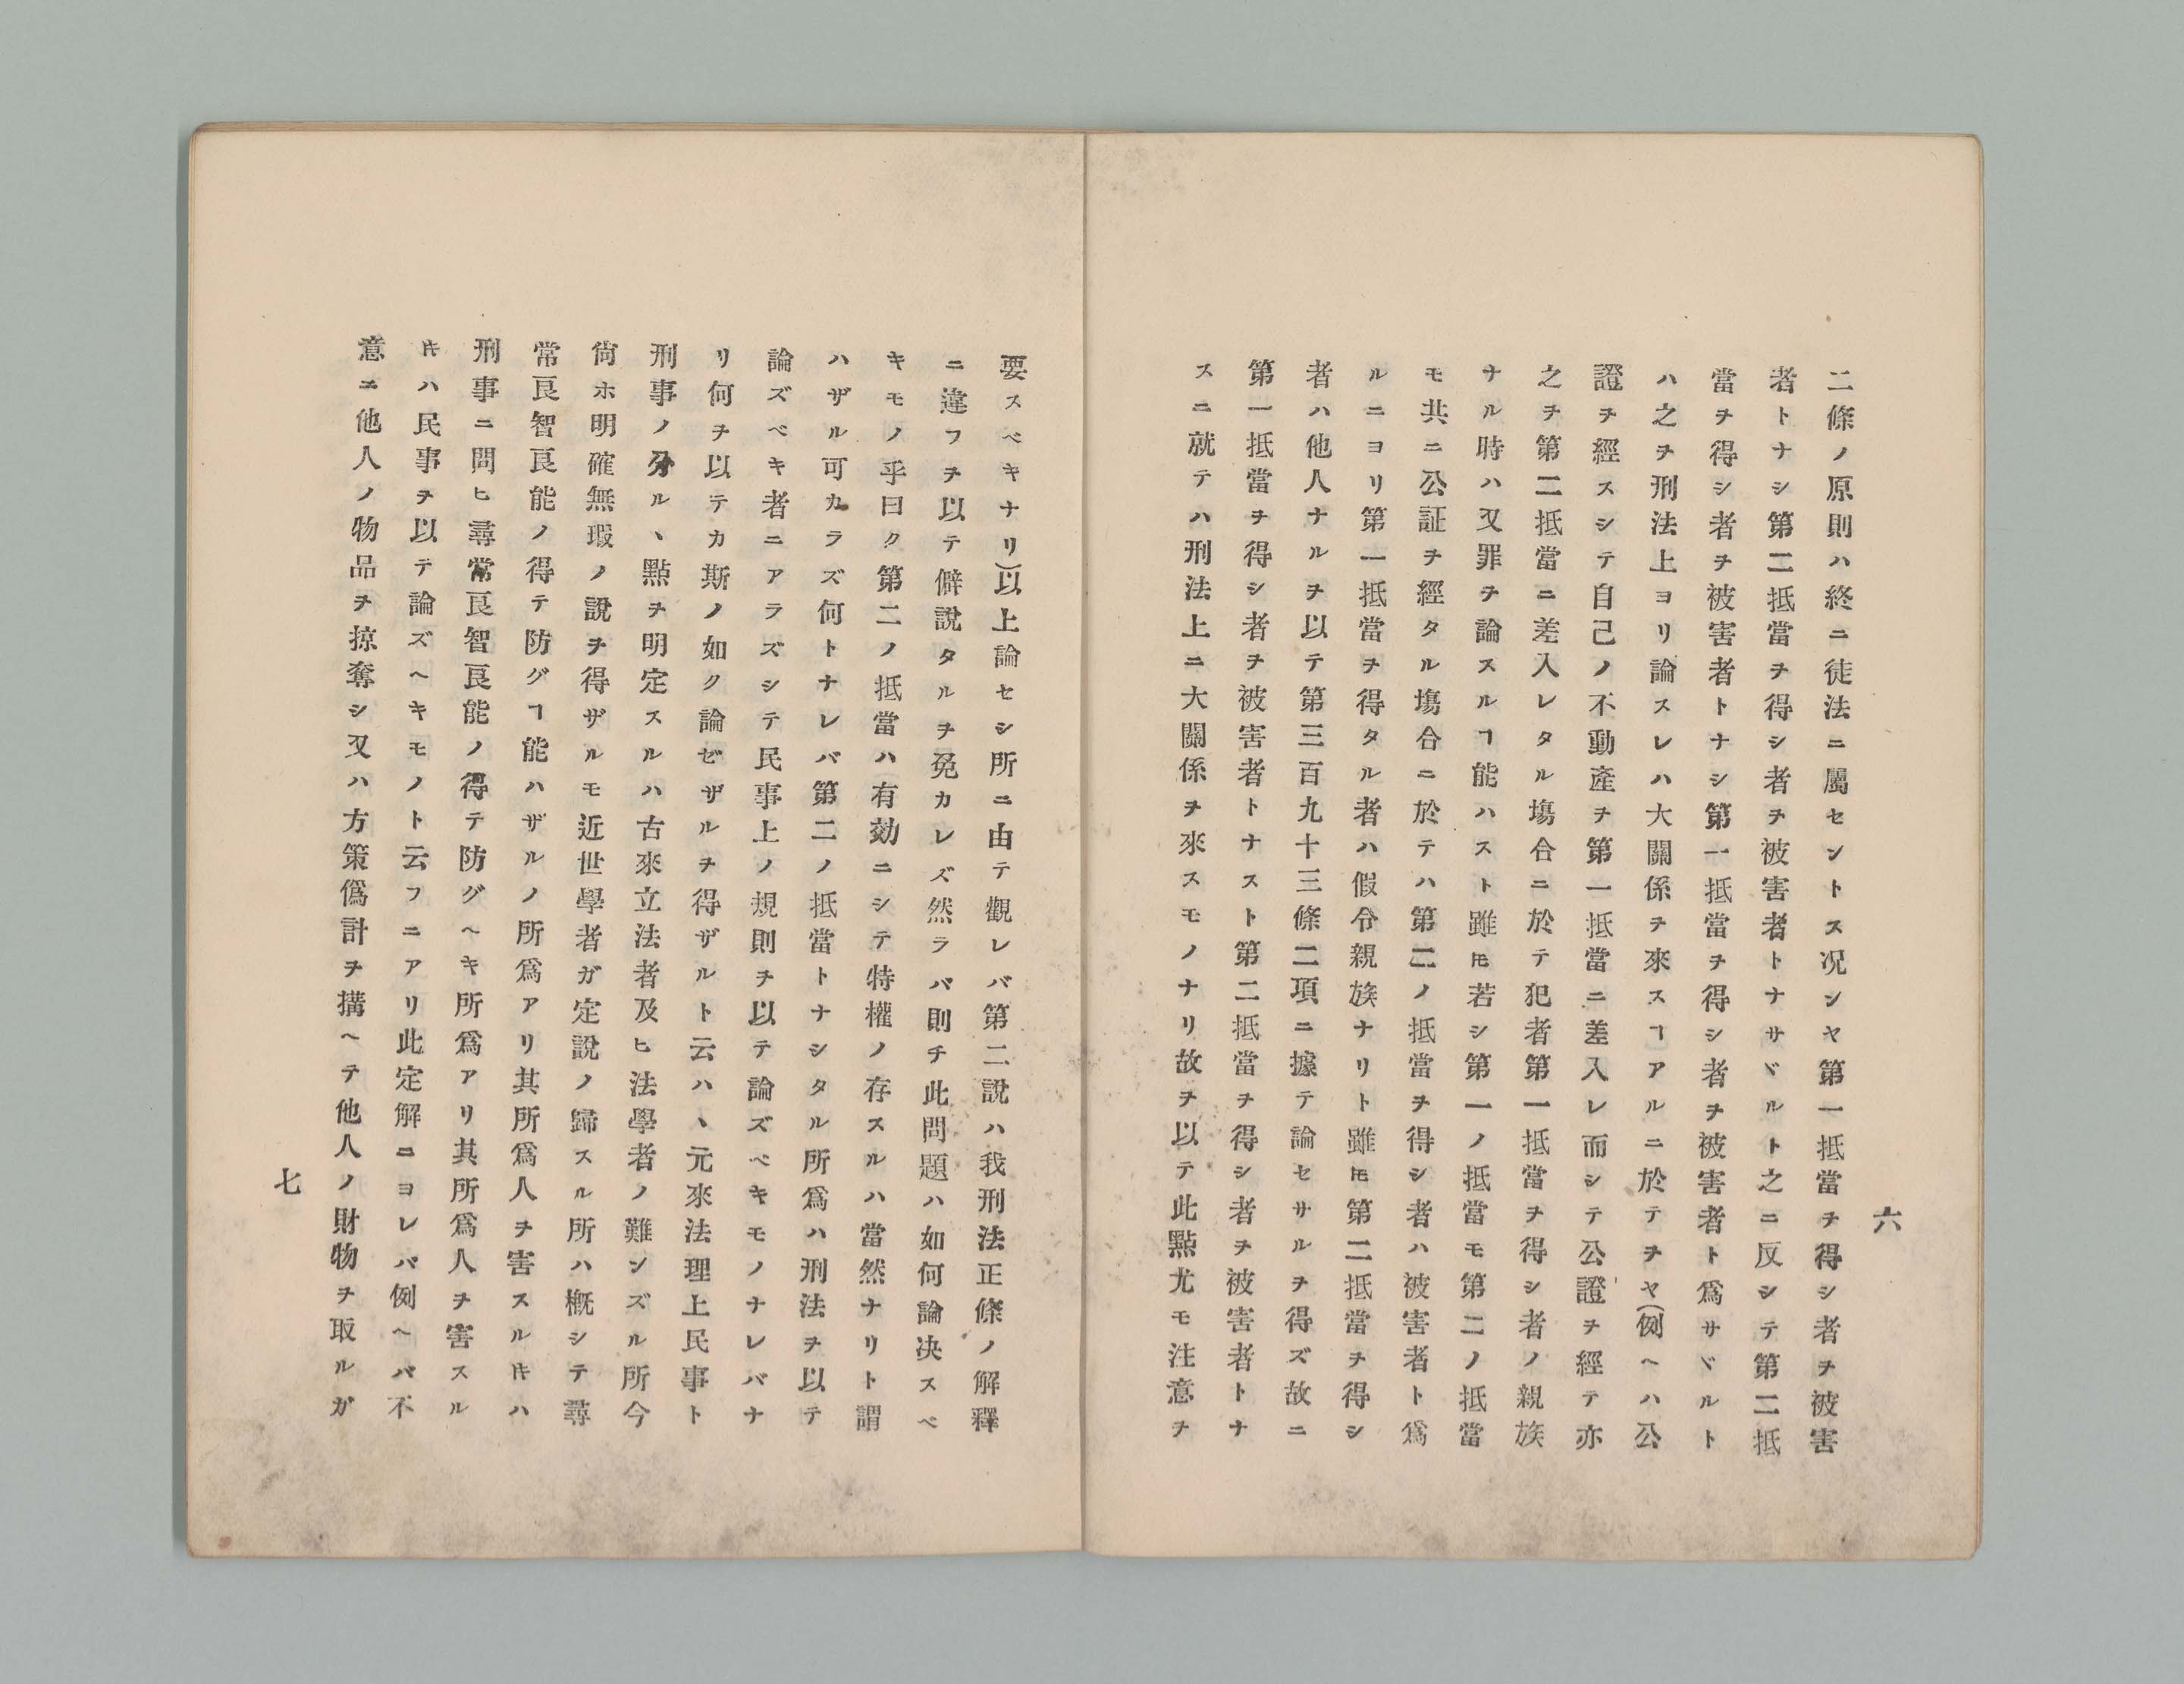 六
二條ノ原則ハ終ニ徒法ニ屬セントス況ンヤ第一抵當ヲ得シ者ヲ被害
者トナシ第二抵當ヲ得シ者ヲ被害者トナサヾルト之ニ反シテ第二抵
當ヲ得シ者ヲ被害者トナシ第一抵當ヲ得シ者ヲ被害者ト爲サヾルト
ハ之ヲ刑法上ヨリ論スレハ大關係ヲ來スヿアルニ於テヲヤ(例ヘハ公
證ヲ經スシテ自己ノ不動產ヲ第一抵當ニ差入レ而シテ公證ヲ經テ亦
之ヲ第二抵當ニ差入レタル塲合ニ於テ犯者第一抵當ヲ得シ者ノ親族
ナル時ハ又罪ヲ論スルヿ能ハスト雖𪜈若シ第一ノ抵當モ第二ノ抵當
モ共ニ公証ヲ經タル塲合ニ於テハ第二ノ抵當ヲ得シ者ハ被害者ト爲
ルニヨリ第一抵當ヲ得タル者ハ假令親族ナリト雖𪜈第二抵當ヲ得シ
者ハ他人ナルヲ以テ第三百九十三條二項ニ據テ論セサルヲ得ズ故ニ
第一抵當ヲ得シ者ヲ被害者トナスト第二抵當ヲ得シ者ヲ被害者トナ
スニ就テハ刑法上ニ大關係ヲ來スモノナリ故ヲ以テ此點尤モ注意ヲ
要スベキナリ)以上論セシ所ニ由テ觀レバ第二說ハ我刑法正條ノ解釋
ニ違フヲ以テ僻說タルヲ免カレズ然ラバ則チ此問題ハ如何論决スベ
キモノ乎曰ク第二ノ抵當ハ有効ニシテ特權ノ存スルハ當然ナリト謂
ハザル可カラズ何トナレバ第二ノ抵當トナシタル所爲ハ刑法ヲ以テ
論ズベキ者ニアラズシテ民事上ノ規則ヲ以テ論ズベキモノナレバナ
リ何ヲ以テカ斯ノ如ク論ゼザルヲ得ザルト云ハヽ元來法理上民事ト
刑事ノ分ルヽ點ヲ明定スルハ古來立法者及ヒ法學者ノ難ンズル所今
尙ホ明確無瑕ノ說ヲ得ザルモ近世學者ガ定說ノ歸スル所ハ槪シテ尋
常良智良能ノ得テ防グヿ能ハザルノ所爲アリ其所爲人ヲ害スルㇳキハ
刑事ニ問ヒ尋常良智良能ノ得テ防グヘキ所爲アリ其所爲人ヲ害スル
ㇳキハ民事ヲ以テ論ズヘキモノト云フニアリ此定解ニヨレバ例ヘバ不
意ニ他人ノ物品ヲ掠奪シ又ハ方策僞計ヲ搆ヘテ他人ノ財物ヲ取ルガ
七